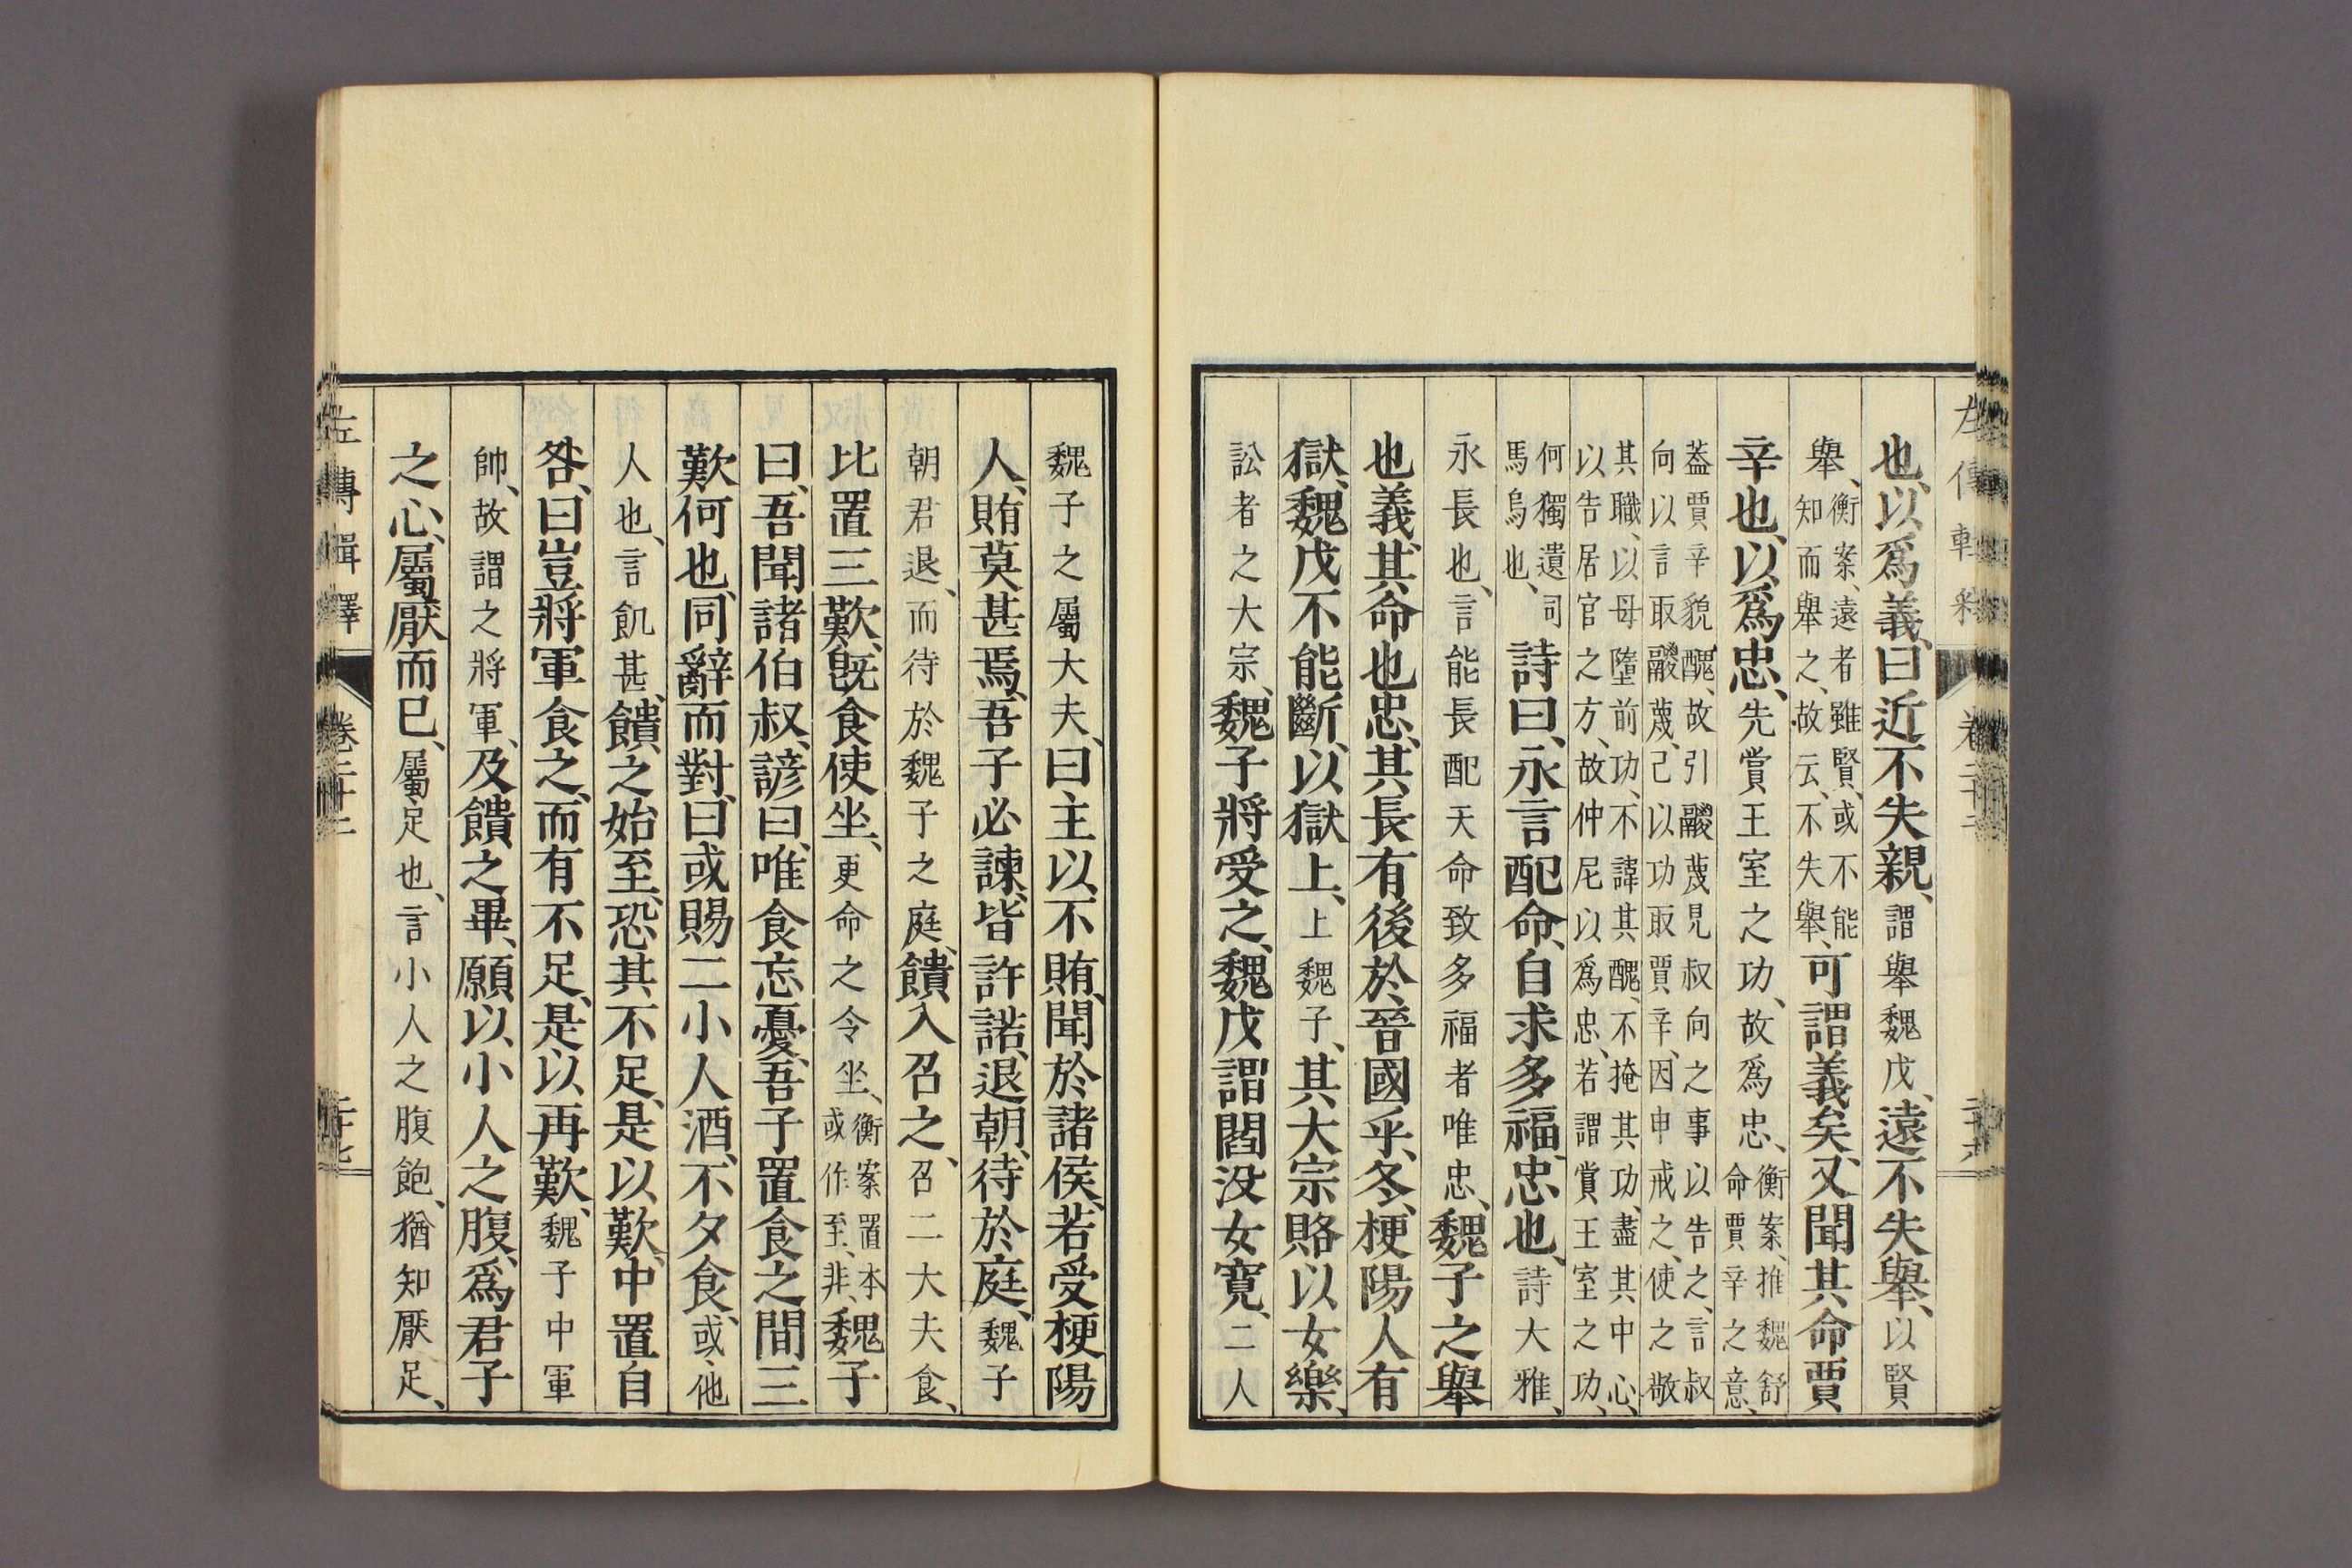 左傳輯釋 卷二十二 二十六
也、以爲義、曰近不失親、謂舉魏戊、遠不失舉、以賢
舉、衡案、遠者雖賢、或不能
知而舉之、故云、不失舉、可謂義矣、又聞其命賈
辛也、以爲忠、先賞王室之功、故爲忠、衡案、推魏舒
命賈辛之意、
蓋賈辛貌醜、故引鬷蔑見叔向之事以告之、言叔
向以言取鬷蔑、己以功取賈辛、因申戒之、使之敬
其職、以毋墮前功、不諱其醜、不掩其功、盡其中心、
以告居官之方、故仲尼以爲忠、若謂賞王室之功、
何獨遺司
馬烏也、詩曰、永言配命、自求多福、忠也、詩大雅、
永長也、言能長配天命致多福者唯忠、魏子之舉
也義、其命也忠、其長有後於晉國乎、冬、梗陽人有
獄、魏戊不能斷、以獄上、上魏子、其大宗賂以女樂、
訟者之大宗、魏子將受之、魏戊謂閻没女寬、二人
魏子之屬大夫、曰主以不賄、聞於諸侯、若受梗陽
人、賄莫甚焉、吾子必諫、皆許諾、退朝、待於庭、魏子
朝君退、而待於魏子之庭、饋入召之、召二大夫食、
比置三歎、既食使坐、更命之令坐、衡案置本
或作至、非、魏子
曰、吾聞諸伯叔、諺曰、唯食忘憂、吾子置食之間三
歎何也、同辭而對、曰或賜二小人酒、不夕食、或、他
人也、言飢甚、饋之始至、恐其不足、是以歎、中置自
咎、曰豈將軍食之、而有不足、是以再歎、魏子中軍
帥、故謂之將軍、及饋之畢、願以小人之腹、爲君子
之心、屬厭而已、屬足也、言小人之腹飽、猶知厭足、
左傳輯釋 卷二十二 二十七